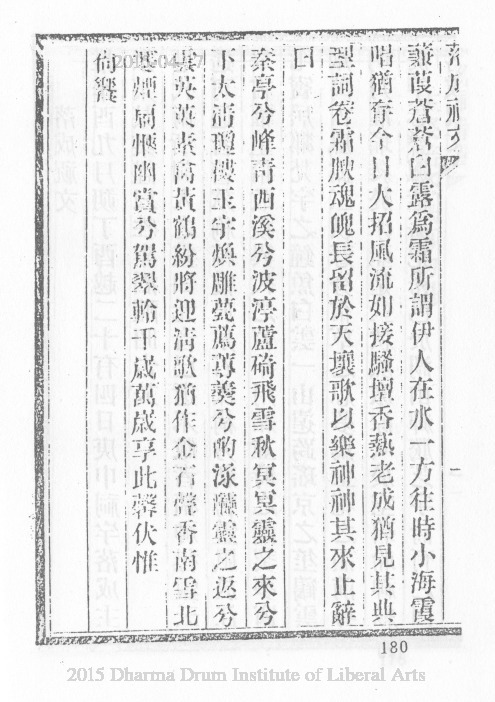 落成祠文
蒹葭蒼蒼白露為霜所謂伊人在水一方往時小海霞
唱猶存今日大招風流如接騷壇香爇老成猶見其典
型詞卷霜腴魂魄長留於天壤歌以樂神神其來止辭
曰
秦亭兮峰靑西溪兮波渟蘆碕飛雪秋冥冥靈之來兮
下太淸瓊樓玉宇煥雕甍薦蓴羹兮酌淥醽靈之返兮
雲英英素鸞黃鶴紛將迎淸歌猶作金石聲香南雪北
愜幽賞兮駕翠軨千歲萬歲享此馨伏惟
尙饗
一
180
2015 Dharma Drum Institute of Liberal Arts